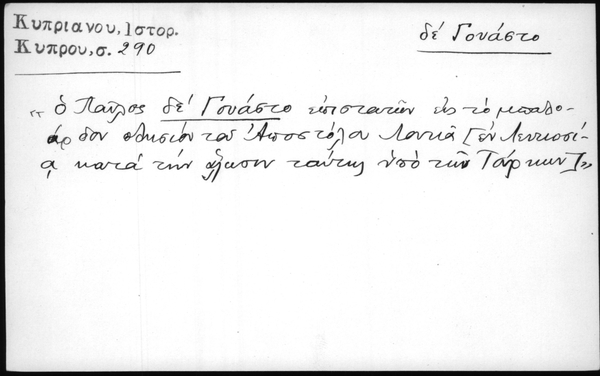 Κυπριανου, Ιστορ.
Κυπρου, σ. 290
δέ Γουάστο
"ὁ Παῦλος δέ Γουάστο ἐπιστατῶν εἰς τὸ μπαλο-
άρδον πλησίον τοῦ Ἀποστόλου Λουκᾶ [ἐν Λευκοσί-
ᾳ κατά τήν ἅλωσιν ταύτης ὑπό τῶν Τούρκων]"